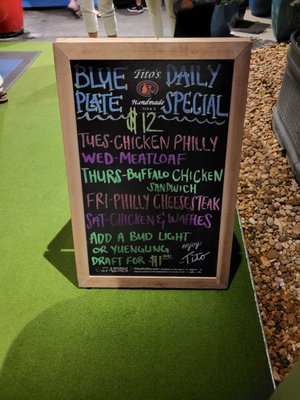 BLUE Tito's DAILY
PLATE Handmade SPECIAL
$12
TUES-CHICKEN PHILLY
WED-MEATLOAF
THURS-BUFFALO CHICKEN
SANDWICH
FRI-PHILLY CHEESESTEAK
SAT-CHICKEN & WAFFLES
ADD A BUD LIGHT
OR YUENGLING
DRAFT FOR $1.00
enjoy,
Tito